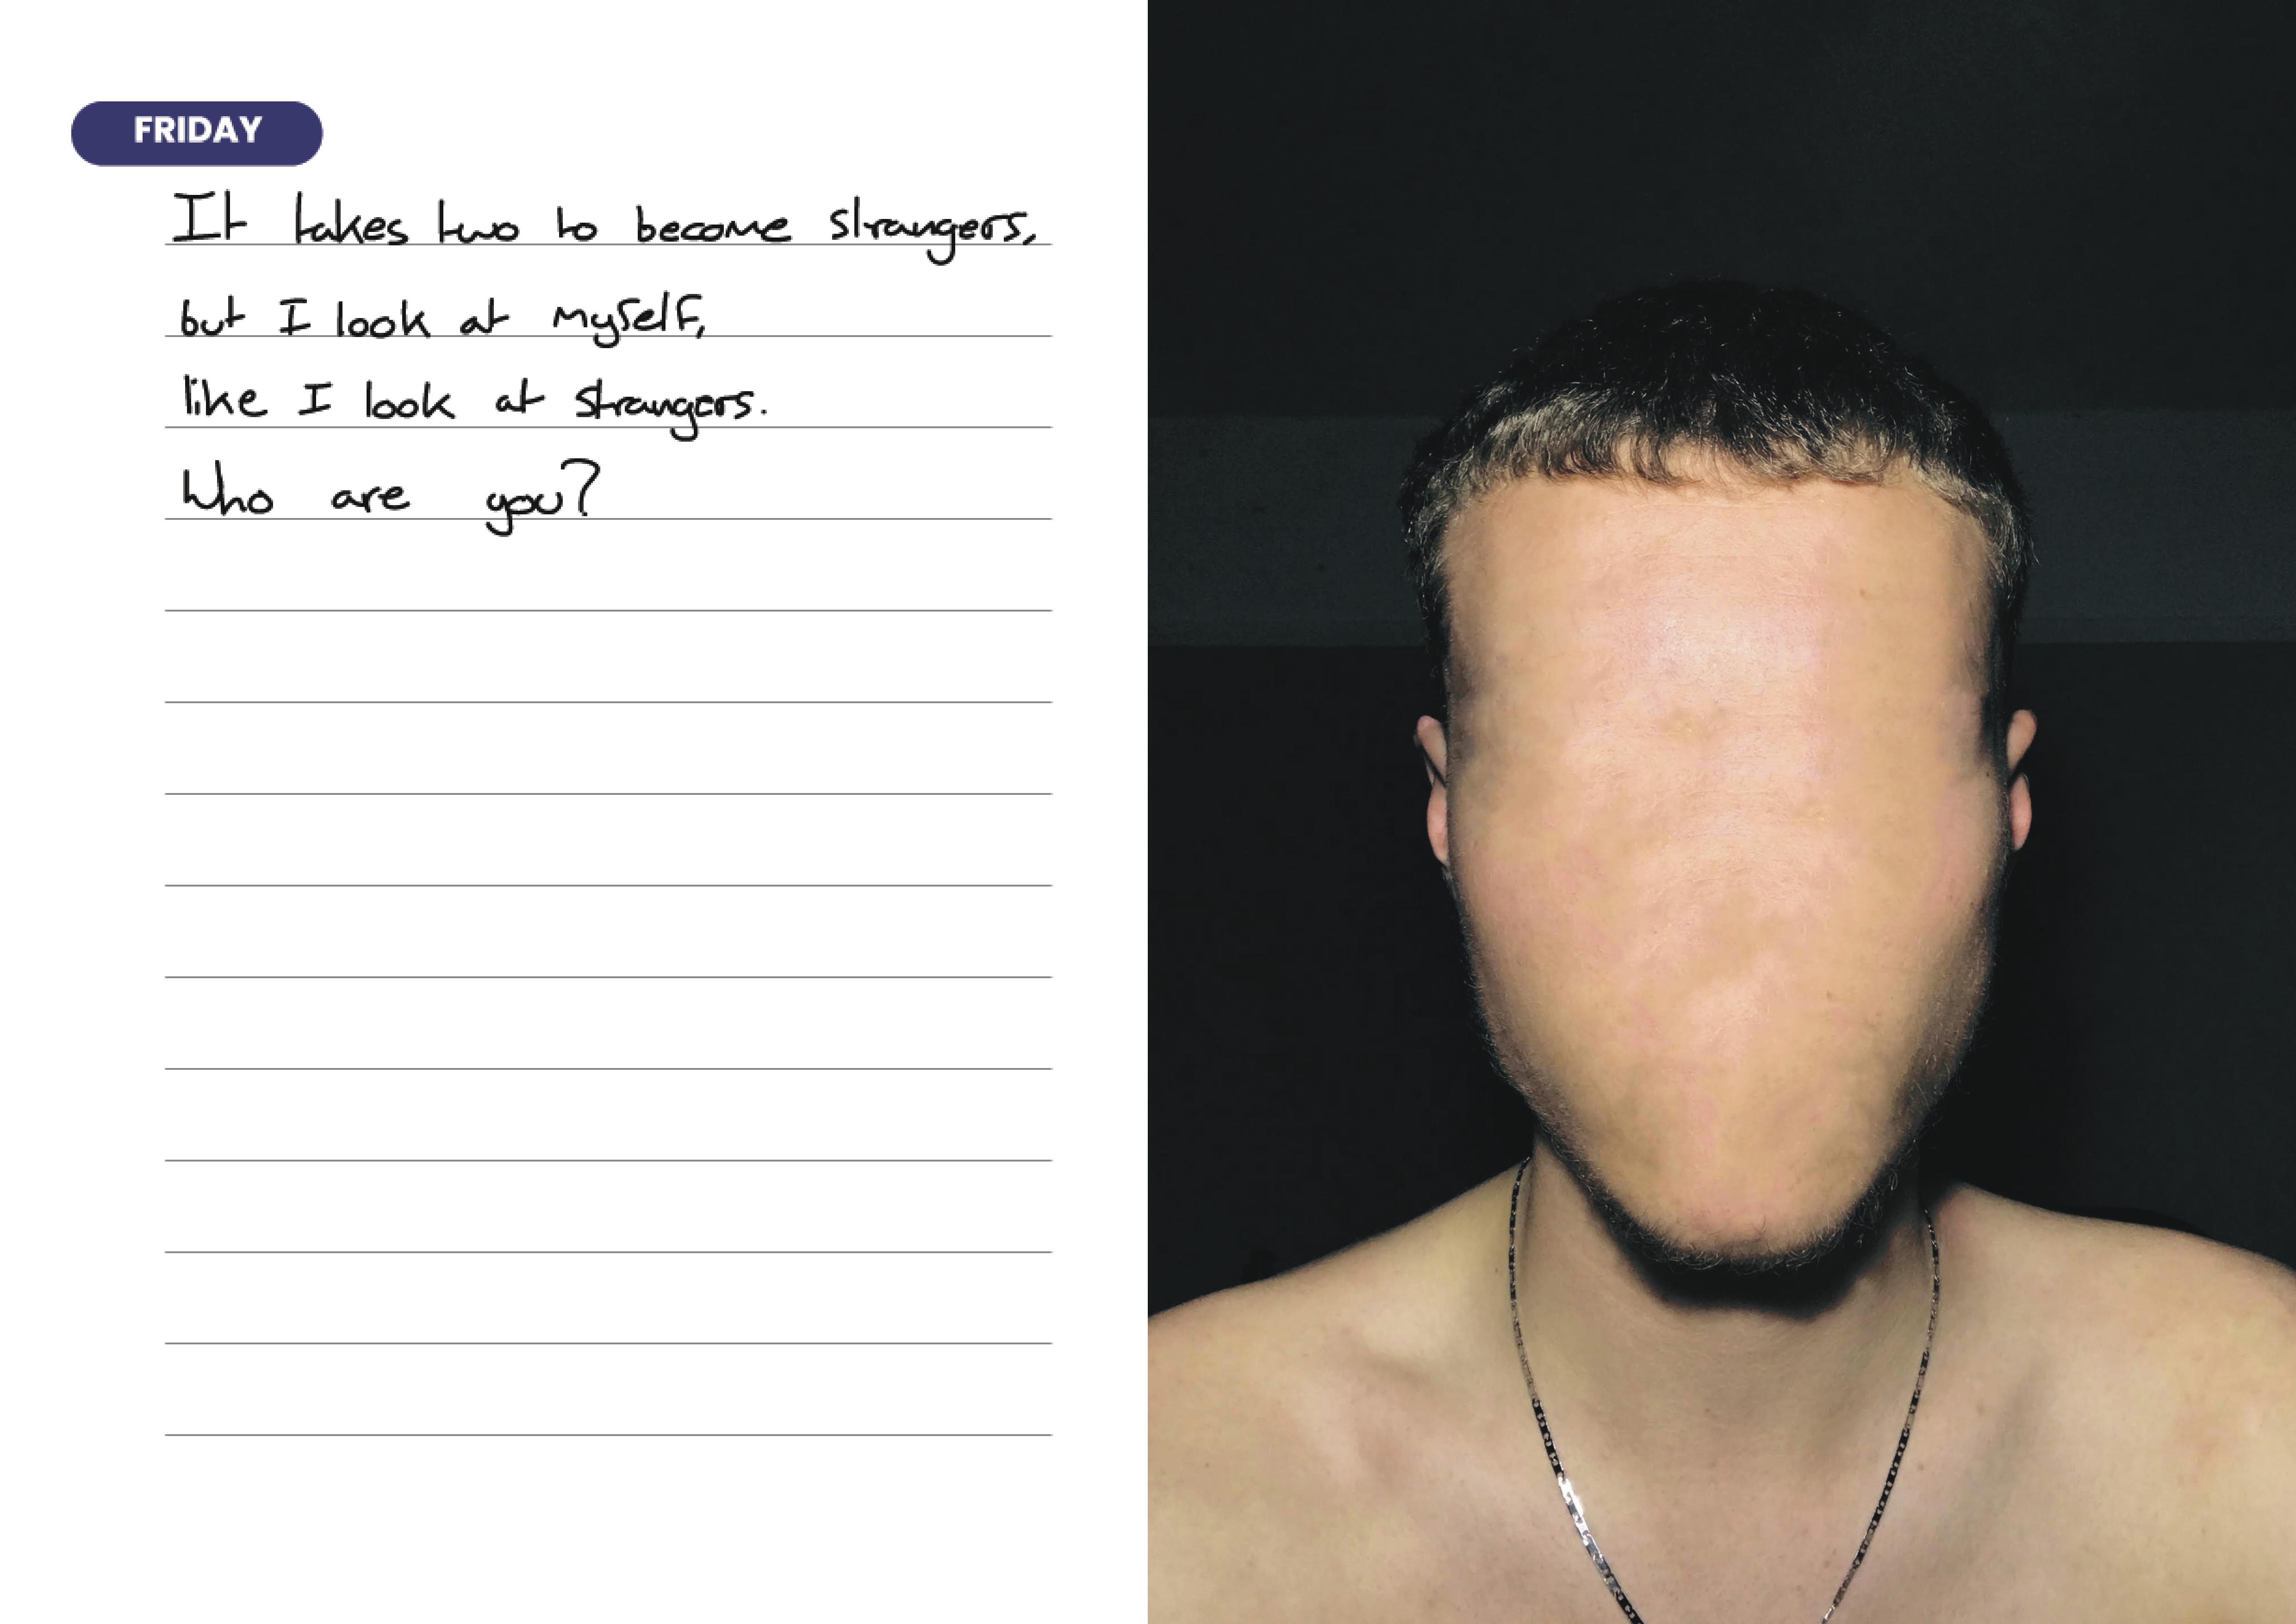 FRIDAY
It takes two to become strangers,
but I look at myself,
like I look at strangers.
Who are you?